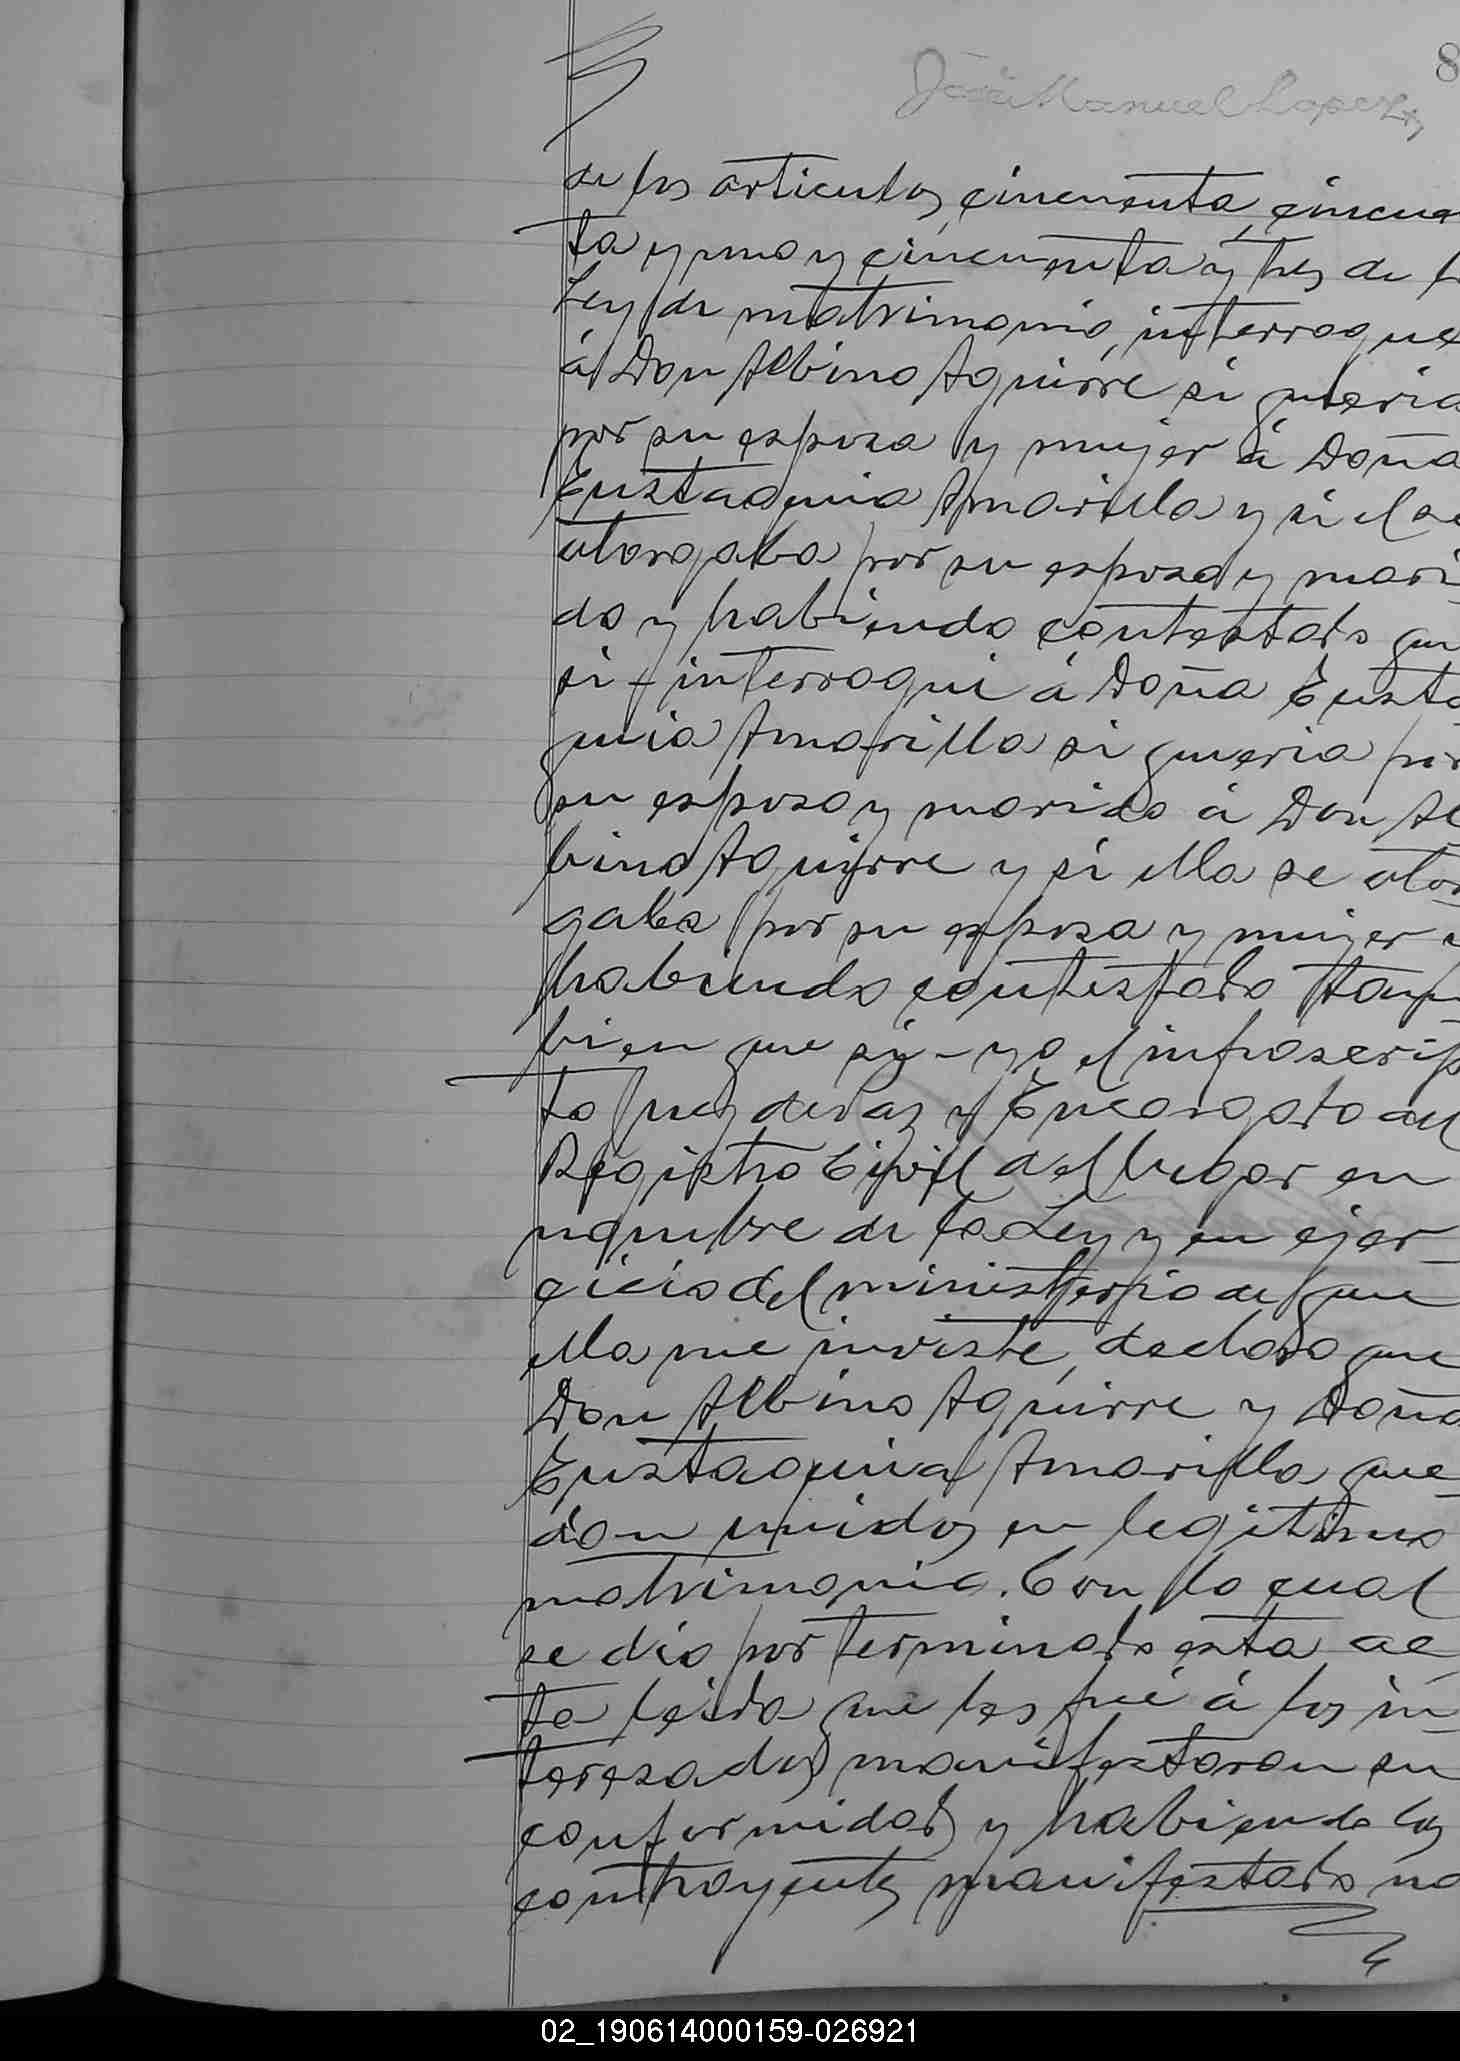 8
José Manuel Lopez
de los articulos, cincuenta, cincuen
ta y uno y cincuenta y tres de l
Ley de matrimonio, interrogue
á Don Albino Aguirre si queria
por su esposa y mujer á Doña
Eustaquia Amarilla y si el se
otorgaba por su esposo y mari
do y habiendo contestado que
si - interrogui á Doña Eusta
quia Amarilla si queria por
su esposo y marido á Don Al
bino Aguirre y si ella se otor
gaba por su esposa y mujer y
habiendo contestado tam
bien que si - yo el infrascrip
to Juez de Paz y Encargado del
Registro Civil del lugar en
nombre de la Ley y en ejer
cicio del ministerio de que
ella me inviste, declaro que
Don Albino Aguirre y Doña
Eustaquia Amarilla que
dan unidos en legitimo
matrimonio. Con lo cual
se dió por terminado esta ac
ta leida que les fué á los in
teresados manifestaron su
conformidad y habiendo los
contrayentes manifestado no
02_190614000159-026921